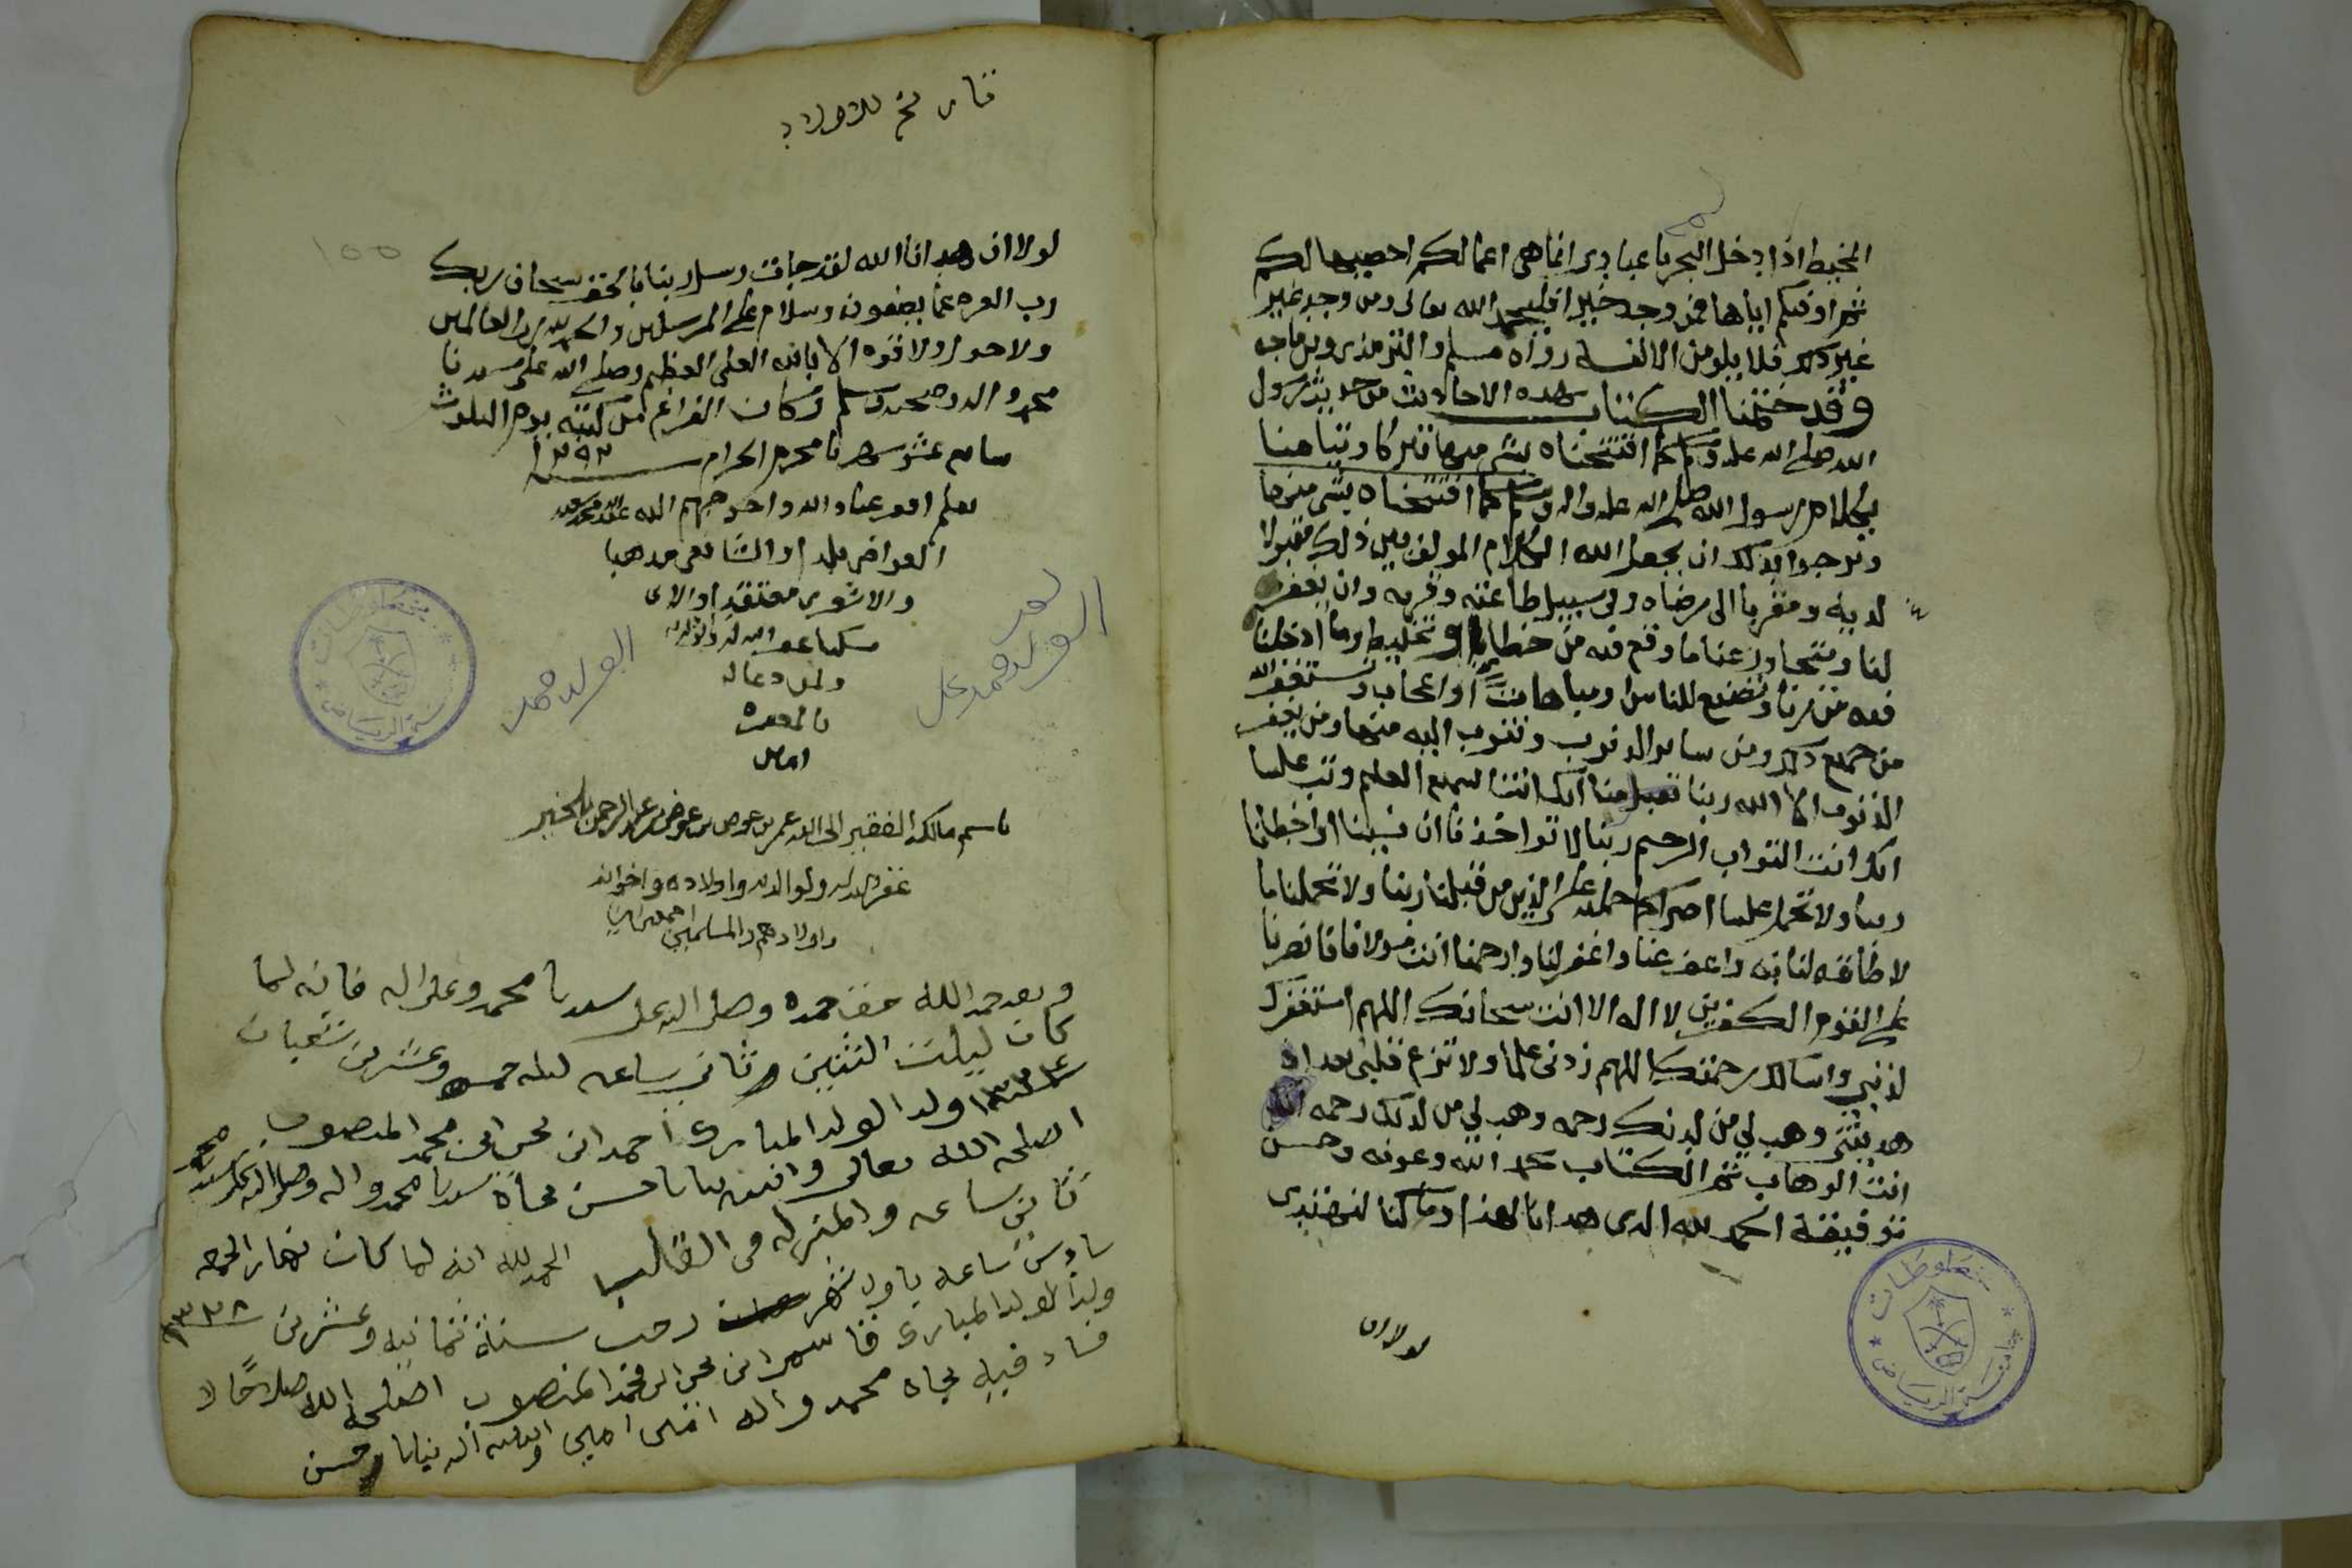 المخيط اذا دخل البحر يا عبادي انما هي اعمالكم احصيها لكم
ثم اوفيكم اياها فمن وجد خيرا فليحمد الله تعالى ومن وجد غير
غير ذلك فلا يلومن الا نفسه رواه مسلم والترمذي وبن ماجه
وقد ختمنا الكتاب بهذه الاحاديث من حديث رسول
الله صلى الله عليه وسلم كما افتتحناه بشي منها تبركا وتيامنا
بكلام رسول الله صلى الله عليه واله وسلم كما افتتحناه بشي منها
ونرجوا بذلك ان يجعل الله الكلام المولف بين ذلك مقبولا
لديه ومقربا الى رضاه والى سبيل طاعته وقربه وان يغفر
لنا ويتجاوز عنا ما وقع فيه من خطايا وتخليط وما ادخلنا
فيه من ريا وتصنع للناس ومباهات او اعجاب ونستغفر الله
من جميع ذلك ومن ساير الذنوب ونتوب اليه منها ومن يغفر
الذنوب الا الله ربنا تقبل منا انك انت السميع العليم وتب علينا
انك انت التواب الرحيم ربنا لا تواخذنا ان نسينا او اخطانا
ربنا ولا تحمل علينا اصرا كما حملته على الذين من قبلنا ربنا ولا تحملنا ما
لا طاقه لنا به واعف عنا واغفر لنا وارحمنا انت مولانا فانصرنا
على القوم الكفرين لا اله الا انت سبحانك اللهم استغفرك
لذنبي واسالك رحمتك اللهم زدني علما ولا تزغ قلبي بعد اذ
هديتني وهب لي من لدنك رحمه وهب لي من لدنك رحمه انك
انت الوهاب تم الكتاب بحمد الله وعونه وحسن
توفيقه الحمد لله الذي هدانا لهذا وما كنا لنهتدي
لولا ان
جامعة الرياض
مخطوطات
تاريخ للاولاد
لولا ان هدانا الله لقد جات رسل ربنا بالحق سبحان ربك
رب العزه عما يصفون وسلام على المرسلين والحمد لله رب العالمين
ولا حول ولا قوه الا بالله العلي العظيم وصلى الله على سيدنا
محمد واله وصحبه وسلم وكان الفراغ من كتبه يوم الثلوث
عشر شهرنا محرم الحرام سنة ١٢٩٢
بقلم افقر عباد الله واحوجهم اليه
بلدا والشافعي مذهبا
والاشعري معتقدا
مسكنا غفر الله له ولوالديه
ولمن دعا له
بالمغفره
امين
١٥٥
الولد محمد علي
الولد محمد
مخطوطات
جامعة الرياض
باسم مالكه الفقير الى الله عمر بن عوض بن عوض بن عبدالرحمن بلخير
غفر الله له ولوالديه واولاده واخوانه
واولادهم والمسلمين اجمعين امين
وبعد حمد الله حق حمده وصلى الله على سيدنا محمد وعلى اله فانه لما
كان ليلت الثنين وثاني ساعه ليله خمسه وعشرين شعبان
١٣٣٤ ولد الولد المبارك احمد ابن محسن ابن محمد المنصوب
اصلحه الله تعالى وانبته نباتا حسن بجاة سيدنا محمد واله وصلى الله على سيدنا محمد
ثاني ساعه والمنزله في القلب الحمد لله انه لما كان نهار الجمعه
سادس ساعه باول شهر رجب سنة ثمانيه وعشرين ١٣٢٨
ولد الولد المبارك قاسم ابن محسن ابن محمد المنصوب اصلحه الله صلاحًا لا
فساد فيه بجاه محمد واله امين امين وانبته الله نباتا حسن